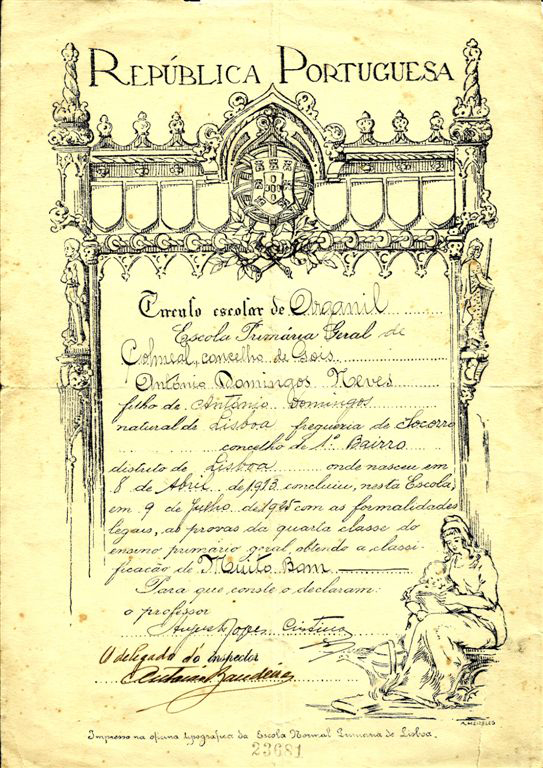 REPÚBLICA PORTUGUESA
Circulo escolar de Arganil
Escola Primária Geral de
Colmeal, concelho de Gois
António Domingos Neves
filho de António Domingos
natural de Lisboa freguesia de Socorro
concelho de 1º Bairro
distrito de Lisboa onde nasceu em
8 de Abril de 1913 concluiu, nesta Escola,
em 9 de Julho de 1925 com as formalidades
legais, as provas da quarta classe do
ensino primário geral, obtendo a classi-
ficação de Muito Bom
Para que conste o declaram:
o professor
Lopes
O delegado do inspector
Impresso na oficina tipografica da Escola Normal Primaria de Lisboa.
23681